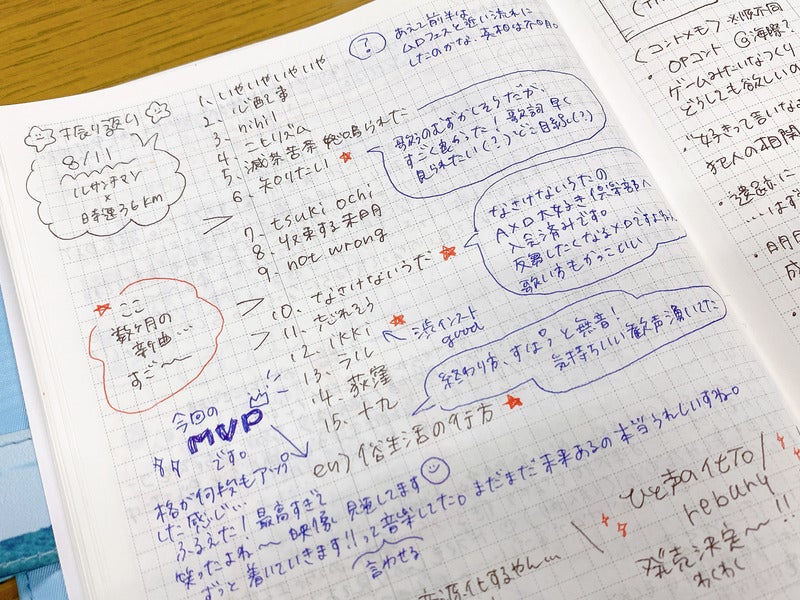 振り返り
8/11
ルサンチマン
×
時速36km
?
あえて前半は
ムロフェスと近い流れに
したのかな、真相は不明。
1、いやいやいやいや
2、心配事
3、nihil
4、ニヒリズム
5、滅茶苦茶
6、知りたい
7、tsuki ochi
8、収束する来月
9、not wrong
10、なさけないうた
11、忘れそう
12、ikki
13、ラル
14、荻窪
15、十九
en) 俗生活の行方
すごく良かった!歌詞 早く
見られたい(?)
なさけないうたの
AメロBメロ大好き倶楽部へ
入会済みです。
反芻したくなるメロですよね
歌い方もかっこいい
渋インスト
good
終わり方、すぱっと無音!
気持ちいい歓声湧いてた
ここ
数ヶ月の
新曲…
すご〜〜
今回の
MVP
です。
格が何段もアップ
した感じ…
ふるえた!最高すぎて
笑ったよね〜映像 見返してます
ずっと着いていきます!!って音楽してた。まだまだ未来あるの本当うれしいすね。
言わせる
音源化するやん…
ひと声の化TO/
rebury
発売決定〜!!
わくわく
<コントメモ>※順不同
OPコント
ゲームみたいなつくり
どうしても欲しいの
"好きって言いな
犯人の1日間
…はず